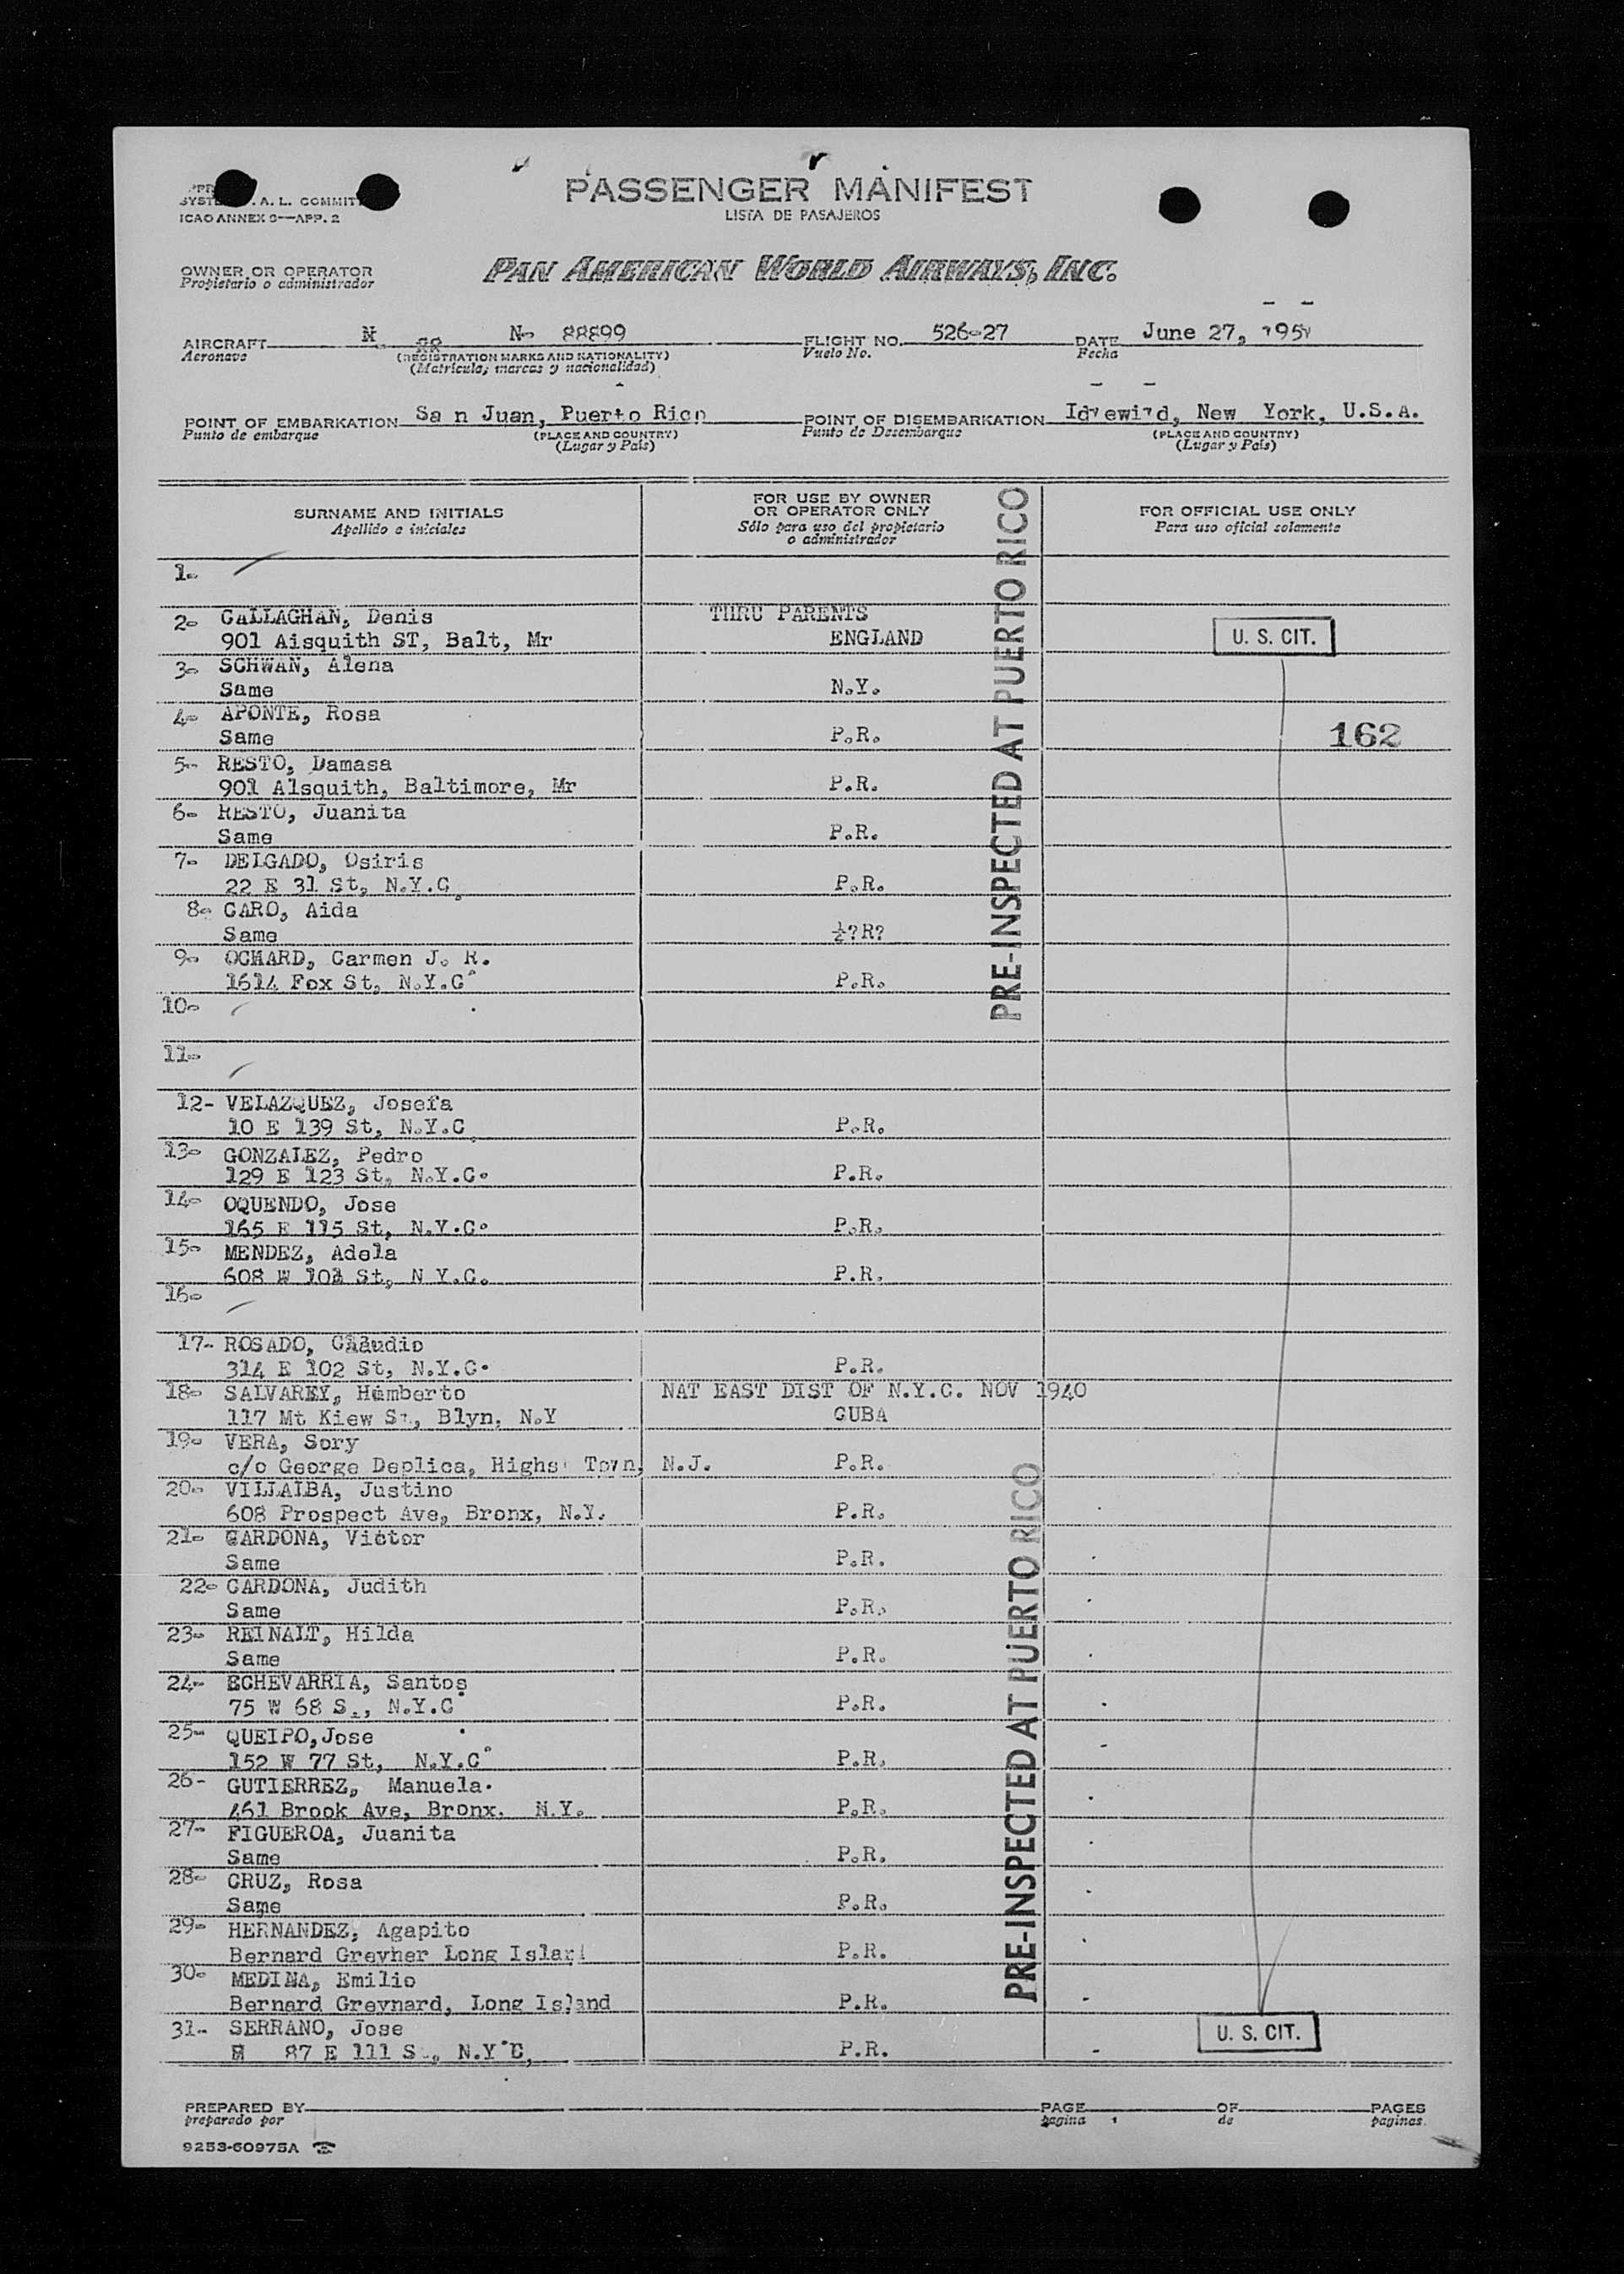 PASSENGER MANIFEST
LISTA DE PASAJEROS
A. L. COMMIT
ICAO ANNEX 9—APP. 2
PAN AMERICAN WORLD AIRWAYS, INC.
OWNER OR OPERATOR
Propietario o administrador
AIRCRAFT N No 88899 FLIGHT NO. 526-27 DATE June 27,
Aeronave (REGISTRATION MARKS AND NATIONALITY) Vuelo No. Fecha
(Matricula, marcas y nacionalidad)
POINT OF EMBARKATION Sa n Juan, Puerto Rico POINT OF DISEMBARKATION Idlewild, New York, U.S.A.
Punto de embarque (PLACE AND COUNTRY) Punto de Desembarque (PLACE AND COUNTRY)
(Lugar y País) (Lugar y País)
SURNAME AND INITIALS
Apellido e iniciales
FOR USE BY OWNER
OR OPERATOR ONLY
Sólo para uso del propietario
o administrador
FOR OFFICIAL USE ONLY
Para uso oficial solamente
PRE-INSPECTED AT PUERTO RICO
1-
2- CALLAGHAN, Denis THRU PARENTS
901 Aisquith ST, Balt, Mr ENGLAND U. S. CIT.
3- SCHWAN, Alena
Same N.Y.
4- APONTE, Rosa
Same P.R. 162
5- RESTO, Damasa
901 Alsquith, Baltimore, Mr P.R.
6- RESTO, Juanita
Same P.R.
7- DELGADO, Osiris
22 E 31 St, N.Y.C P.R.
8- CARO, Aida
Same ½?R?
9- OCHARD, Carmen J. R.
1614 Fox St, N.Y.C P.R.
10-
11-
12- VELAZQUEZ, Josefa
10 E 139 St, N.Y.C P.R.
13- GONZALEZ, Pedro
129 E 123 St, N.Y.C. P.R.
14- OQUENDO, Jose
165 E 115 St, N.Y.C. P.R.
15- MENDEZ, Adela
608 W St, N Y.C. P.R.
16-
17- ROSADO, Claudio
314 E 102 St, N.Y.C. P.R.
18- SALVAREY, Humberto NAT EAST DIST OF N.Y.C. NOV 1940
117 Mt Kiew St, Blyn, N.Y CUBA
19- VERA, Sory
c/o George Deplica, Highs Town, N.J. P.R.
20- VILLALBA, Justino
608 Prospect Ave, Bronx, N.Y. P.R.
21- CARDONA, Victor
Same P.R.
22- CARDONA, Judith
Same P.R.
23- REINALT, Hilda
Same P.R.
24- ECHEVARRIA, Santos
75 W 68 S., N.Y.C P.R.
25- QUEIPO, Jose
152 W 77 St, N.Y.C P.R.
26- GUTIERREZ, Manuela.
461 Brook Ave, Bronx, N.Y. P.R.
27- FIGUEROA, Juanita
Same P.R.
28- CRUZ, Rosa
Same P.R.
29- HERNANDEZ, Agapito
Bernard Greyher Long Island P.R.
30- MEDINA, Emilio
Bernard Greynard, Long Island P.R.
31- SERRANO, Jose U. S. CIT.
87 E 111 S., N.Y C, P.R.
PRE-INSPECTED AT PUERTO RICO
PREPARED BY PAGE OF PAGES
preparado por pagina 1 de paginas
9253-60975A